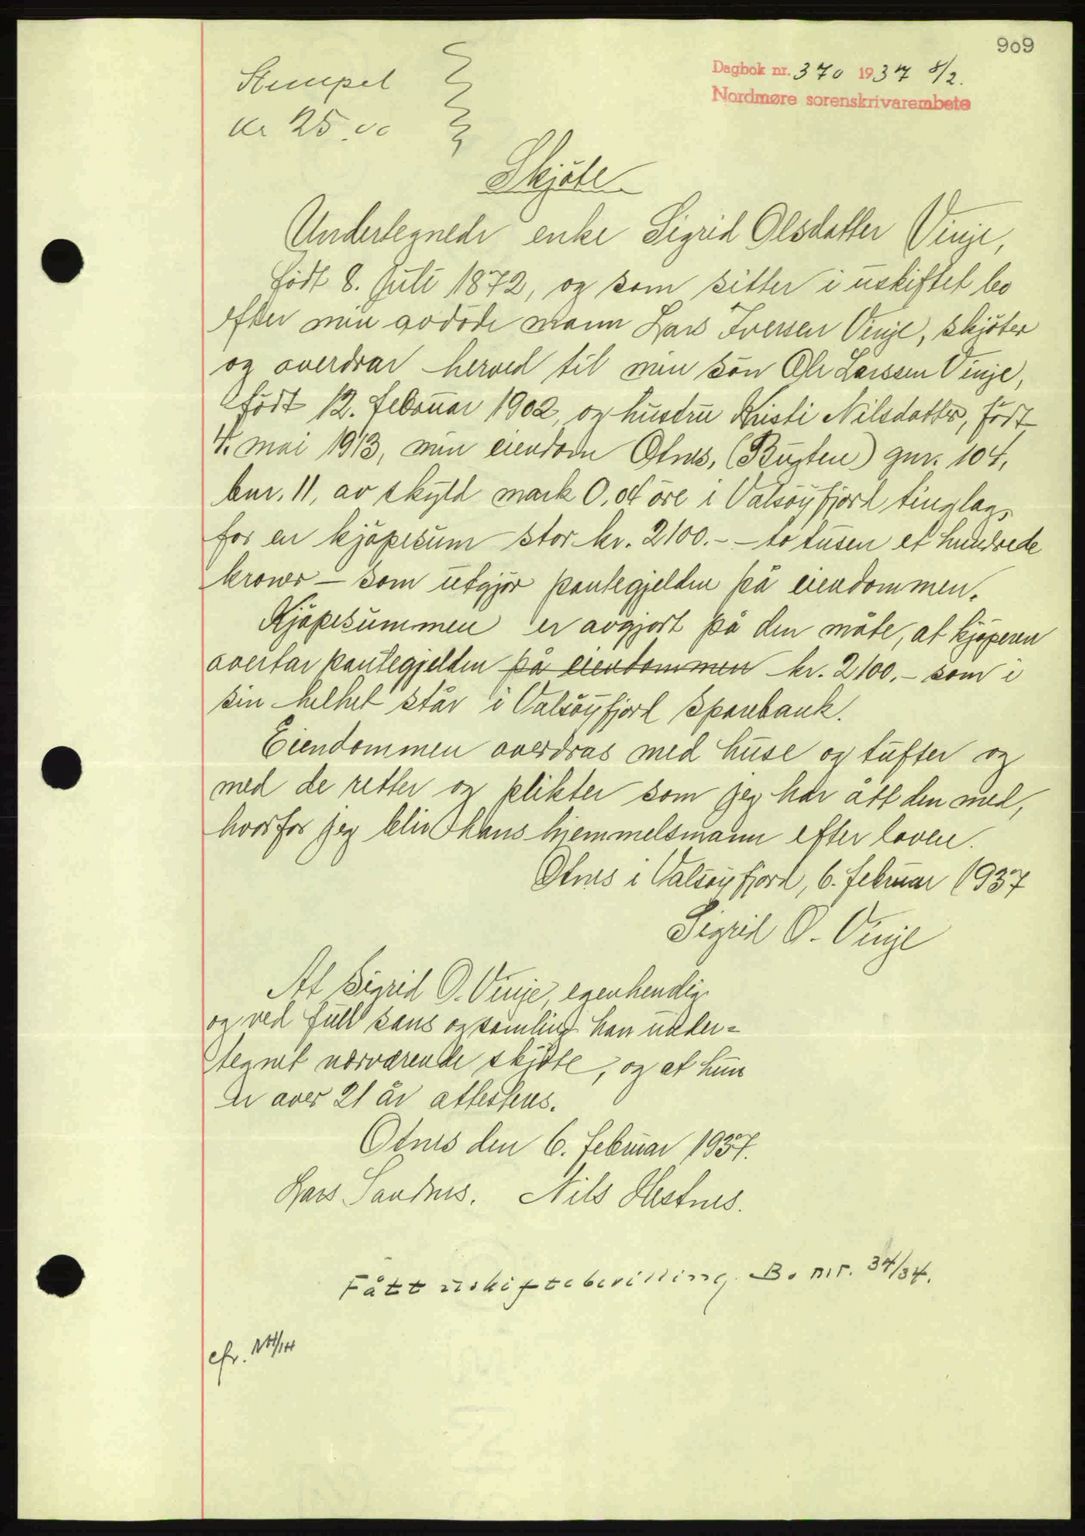 909
Stempel
kr 25.00
Dagbok nr. 370 1937 8/2.
Nordmøre sorenskrivarembete
Skjöte
Undertegnede enke Sigrid Olsdatter Vinje,
født 8. juli 1872, og som sitter i uskiftet bo
efter min avdöde mann Lars Iversen Vinje, skjöter
og overdrar herved til min sön Ole Larssen Vinje,
født 12. februar 1902, og hustru Kristi Nilsdatter, født
4. mai 1913, min eiendom Otnes, (Bugten) gnr. 104,
bnr. 11, av skyld mark 0.04 öre i Valsöyfjord tinglag,
for en kjöpesum stor kr. 2100.- - to tusen et hundrede
kroner - som utgjør pantegjelden på eiendommen.
Kjöpesummen er avgjort på den måte, at kjöperen
overtar pantegjelden på eiendommen kr. 2100.- som i
sin helhet står i Valsöyfjord Sparebank.
Eiendommen overdras med huse og tufter og
med de retter og plikter som jeg har ått den med,
hvorfor jeg blir hans hjemmelsmann efter loven.
Otnes i Valsöyfjord, 6. februar 1937
Sigrid O. Vinje
At Sigrid O. Vinje, egenhendig
og ved full sans og samling har under=
tegnet nærværende skjöte, og at hun
er over 21 år attesteres.
Otnes den 6. februar 1937.
Lars Sandnes. Nils Hestnes.
Fått uskiftebevilling Bo nr. 34/34.
cfr.